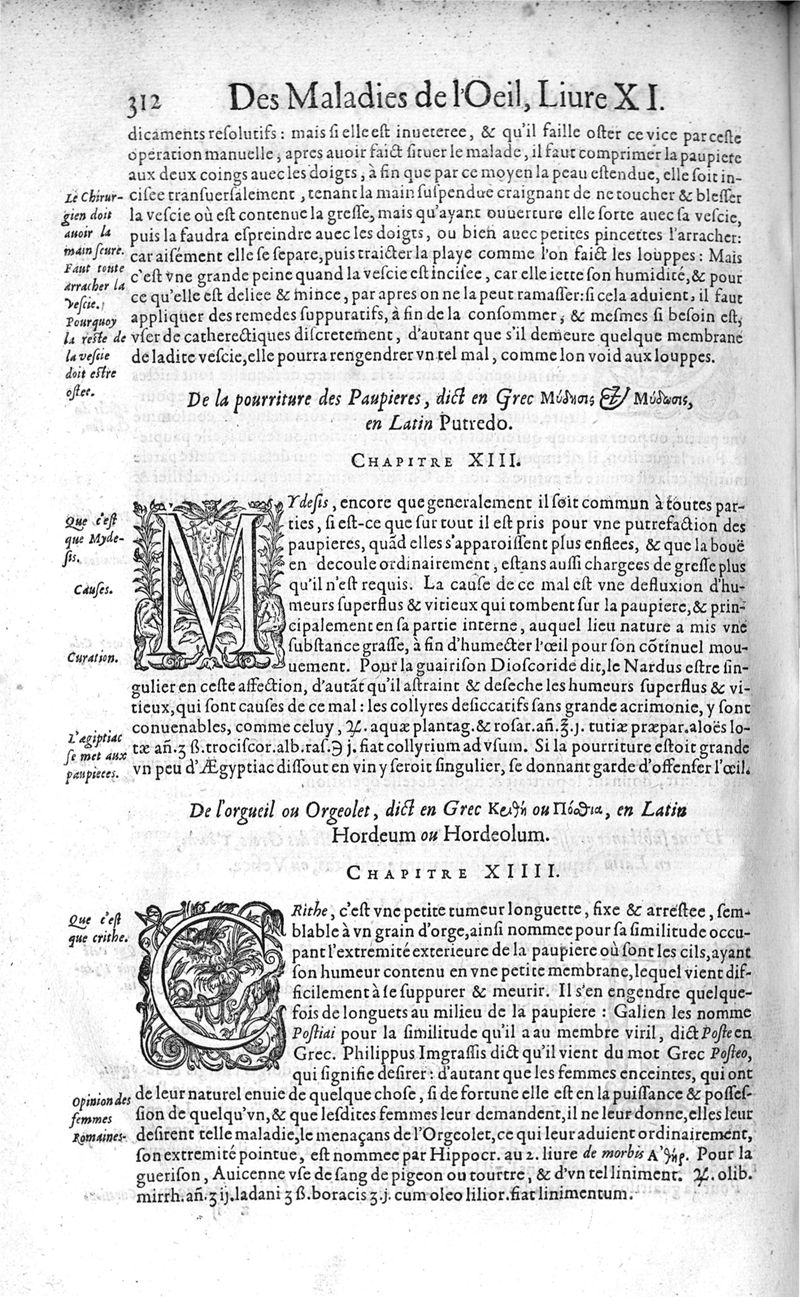 312 Des Maladies de l'Oeil, Liure XI.
dicaments resolutifs : mais si elle est inueteree, & qu'il faille oster ce vice par ceste
operation manuelle, apres auoir faict situer le malade, il faut comprimer la paupiere
aux deux coings auec les doigts, à fin que par ce moyen la peau estendue, elle soit in-
cisee transuersalement, tenant la main suspendue craignant de ne toucher & blesser
la vescie où est contenue la gresse, mais qu'ayant ouuerture elle sorte auec sa vescie,
puis la faudra espreindre auec les doigts, ou bien auec petites pincettes l'arracher:
car aisément elle se separe, puis traicter la playe comme l'on faict les louppes : Mais
c'est vne grande peine quand la vescie est incisee, car elle iette son humidité, & pour
ce qu'elle est deliee & mince, par apres on ne la peut ramasser: si cela aduient, il faut
appliquer des remedes suppuratifs, à fin de la consommer, & mesmes si besoin est,
vser de catherectiques discretement, d'autant que s'il demeure quelque membrane
de ladite vescie, elle pourra rengendrer vn tel mal, comme lon void aux louppes.
Le Chirur-
gien doit
auoir la
main seure.
Faut toute
arracher la
vescie.
Pourquoy
la reste de
la vescie
doit estre
ostee.
De la pourriture des Paupieres, dict en Grec Μύδησις & Μύδωσις,
en Latin Putredo.
CHAPITRE XIII.
MYdesis, encore que generalement il soit commun à toutes par-
ties, si est-ce que sur tout il est pris pour vne putrefaction des
paupieres, quãd elles s'apparoissent plus enflees, & que la bouë
en decoule ordinairement, estans aussi chargees de gresse plus
qu'il n'est requis. La cause de ce mal est vne defluxion d'hu-
meurs superflus & vitieux qui tombent sur la paupiere, & prin-
cipalement en sa partie interne, auquel lieu nature a mis vne
substance grasse, à fin d'humecter l'œil pour son cõtinuel mou-
uement. Pour la guairison Dioscoride dit, le Nardus estre sin-
gulier en ceste affection, d'autãt qu'il astraint & deseche les humeurs superflus & vi-
tieux, qui sont causes de ce mal : les collyres desiccatifs sans grande acrimonie, y sont
conuenables, comme celuy, ℞. aquæ plantag. & rosar. añ. ℥. j. tutiæ præpar. aloës lo-
tæ añ. ʒ ß. trociscor. alb. ras. ℈ j. fiat collyrium ad vsum. Si la pourriture estoit grande
vn peu d'Ægyptiac dissout en vin y seroit singulier, se donnant garde d'offenser l'œil.
Que c'est
que Myde-
sis.
Causes.
Curation.
L'ægiptiac
se met aux
paupieces.
De l'orgueil ou Orgeolet, dict en Grec Κριθὴ ou Πόσθια, en Latin
Hordeum ou Hordeolum.
CHAPITRE XIIII.
CRithe, c'est vne petite tumeur longuette, fixe & arrestee, sem-
blable à vn grain d'orge, ainsi nommee pour sa similitude occu-
pant l'extremité exterieure de la paupiere où sont les cils, ayant
son humeur contenu en vne petite membrane, lequel vient dif-
ficilement à se suppurer & meurir. Il s'en engendre quelque-
fois de longuets au milieu de la paupiere : Galien les nomme
Postiai pour la similitude qu'il a au membre viril, dict Poste en
Grec. Philippus Imgrassis dict qu'il vient du mot Grec Posteo,
qui signifie desirer : d'autant que les femmes enceintes, qui ont
de leur naturel enuie de quelque chose, si de fortune elle est en la puissance & posses-
sion de quelqu'vn, & que lesdites femmes leur demandent, il ne leur donne, elles leur
desirent telle maladie, le menaçans de l'Orgeolet, ce qui leur aduient ordinairement,
son extremité pointue, est nommee par Hippocr. au 2. liure de morbis Α'θήρ. Pour la
guerison, Auicenne vse de sang de pigeon ou tourtre, & d'vn tel liniment. ℞. olib.
mirrh. añ. ʒ ij. ladani ʒ ß. boracis ʒ. j. cum oleo lilior. fiat linimentum.
Que c'est
que crithe.
Opinion des
femmes
Romaines.